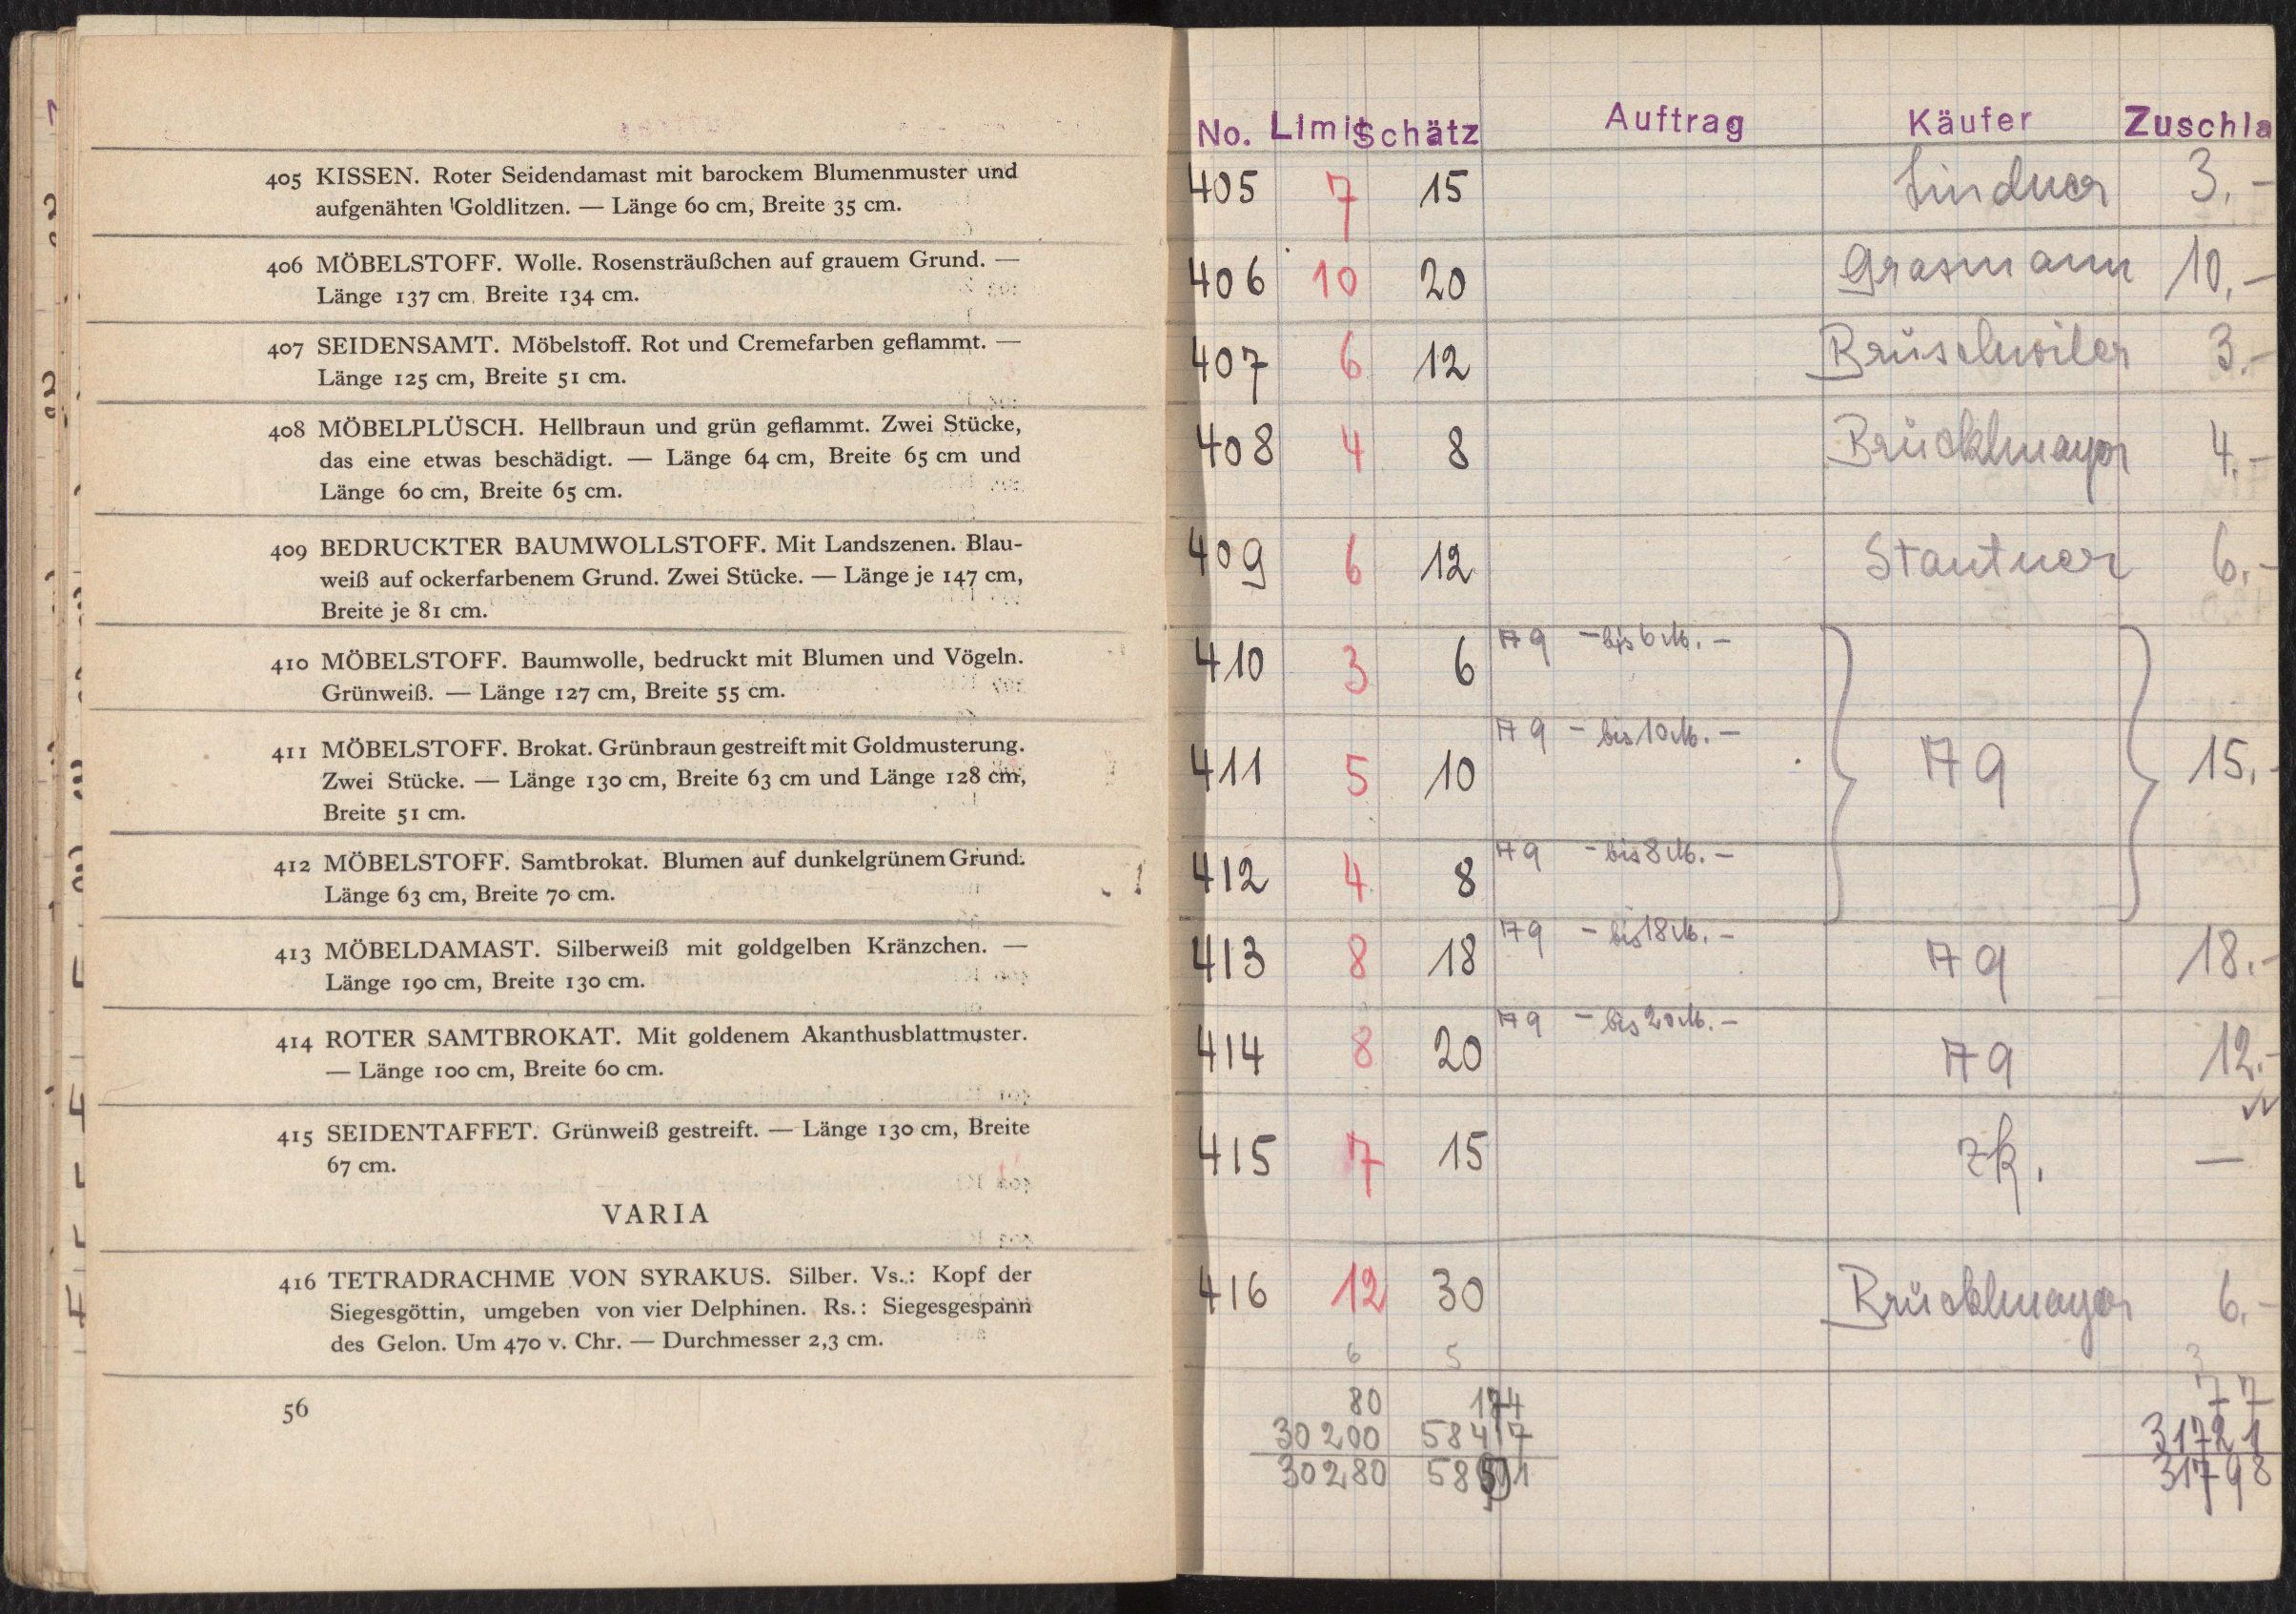 405 KISSEN. Roter Seidendamast mit barockem Blumenmuster und
aufgenähten Goldlitzen. — Länge 60 cm, Breite 35 cm.
406 MÖBELSTOFF. Wolle. Rosensträußchen auf grauem Grund. —
Länge 137 cm, Breite 134 cm.
407 SEIDENSAMT. Möbelstoff. Rot und Cremefarben geflammt. —
Länge 125 cm, Breite 51 cm.
408 MÖBELPLÜSCH. Hellbraun und grün geflammt. Zwei Stücke,
das eine etwas beschädigt. — Länge 64 cm, Breite 65 cm und
Länge 60 cm, Breite 65 cm.
409 BEDRUCKTER BAUMWOLLSTOFF. Mit Landszenen. Blau-
weiß auf ockerfarbenem Grund. Zwei Stücke. — Länge je 147 cm,
Breite je 81 cm.
410 MÖBELSTOFF. Baumwolle, bedruckt mit Blumen und Vögeln.
Grünweiß. — Länge 127 cm, Breite 55 cm.
411 MÖBELSTOFF. Brokat. Grünbraun gestreift mit Goldmusterung.
Zwei Stücke. — Länge 130 cm, Breite 63 cm und Länge 128 cm,
Breite 51 cm.
412 MÖBELSTOFF. Samtbrokat. Blumen auf dunkelgrünem Grund.
Länge 63 cm, Breite 70 cm.
413 MÖBELDAMAST. Silberweiß mit goldgelben Kränzchen. —
Länge 190 cm, Breite 130 cm.
414 ROTER SAMTBROKAT. Mit goldenem Akanthusblattmuster.
— Länge 100 cm, Breite 60 cm.
415 SEIDENTAFFET. Grünweiß gestreift. — Länge 130 cm, Breite
67 cm.
VARIA
416 TETRADRACHME VON SYRAKUS. Silber. Vs.: Kopf der
Siegesgöttin, umgeben von vier Delphinen. Rs.: Siegesgespann
des Gelon. Um 470 v. Chr. — Durchmesser 2,3 cm.
56
No. Limit Schätz Auftrag Käufer Zuschla
405 7 15 Lindner 3.-
406 10 20 Grasmann 10,-
407 6 12 Brüschwiler 3.-
408 4 8 Brücklmayer 4.-
409 6 12 Stautner 6.-
410 3 6 A9 - bis 6 M. -
411 5 10 A9 - bis 10 M. - A9 15.-
412 4 8 A9 - bis 8 M. -
413 8 18 A9 - bis 18 M. - A9 18.-
414 8 20 A9 - bis 20 M. - A9 12.-
415 7 15 zk. —
416 12 30 Brücklmayer 6.-
6 5 3
80 174 77
30200 58417 31721
30280 58591 31798